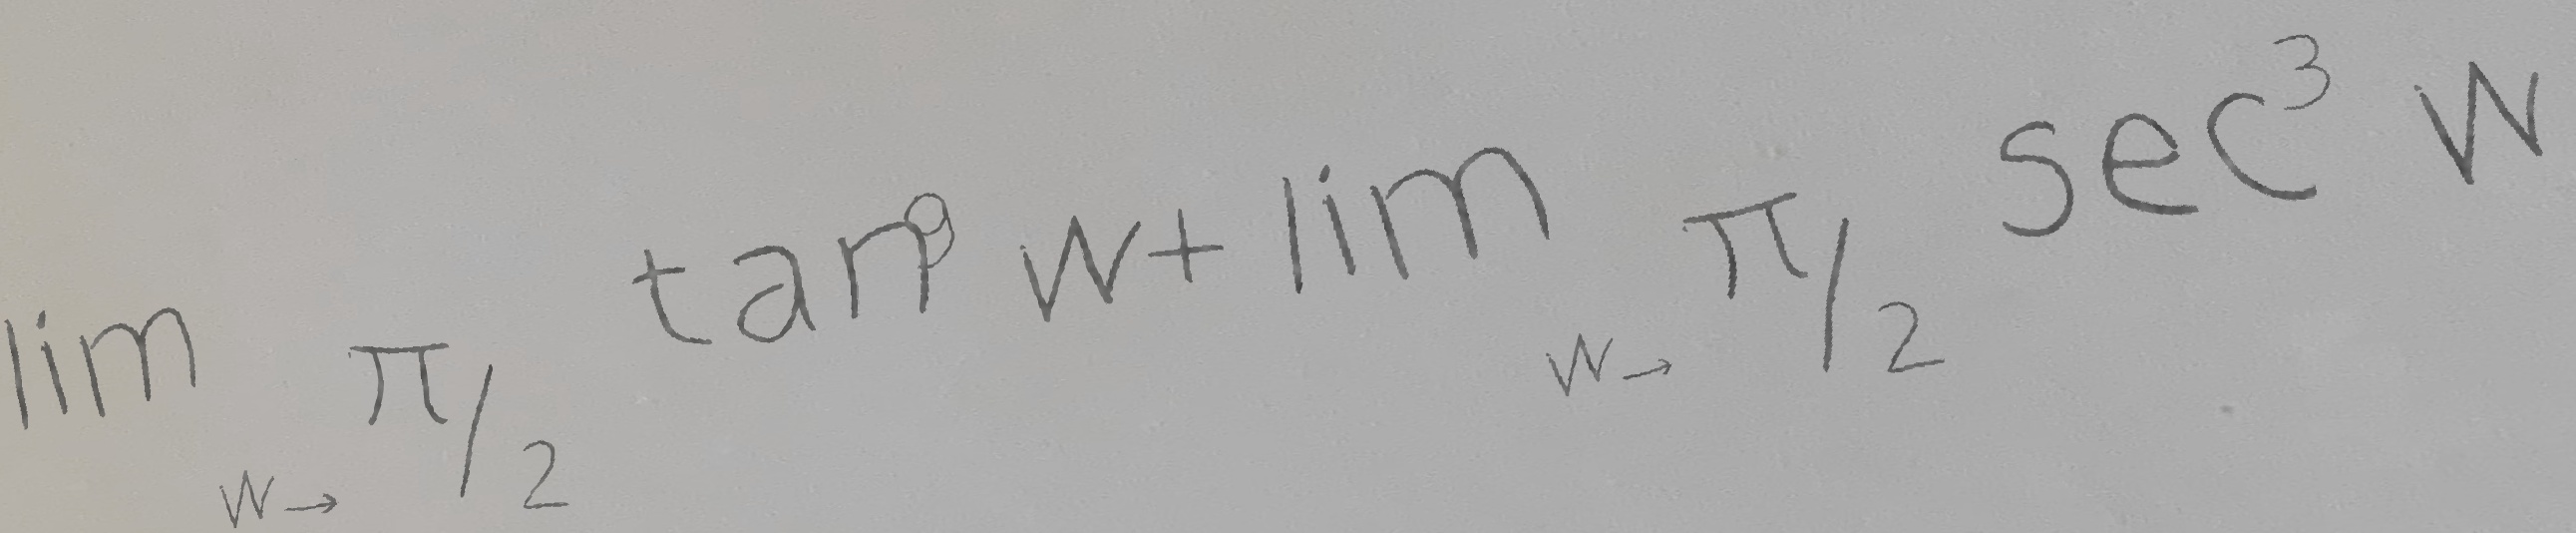 lim w→ π/2 tan⁹ w + lim w→ π/2 sec³ w